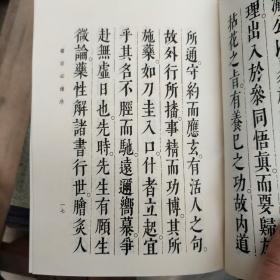 理出入於參同悟真而要歸
拈花之旨有養已之功故內道
所通。守約而應玄。有活人之句。
故外行所播事精而功博。其所
施藥。如刀圭入口。什者立起。宜
乎其名不脛而馳。遠邇嚮慕爭
赴無虛日也。先時。先生有頤生
微論藥性解諸書行世。膾炙人
醫宗必讀序
一七